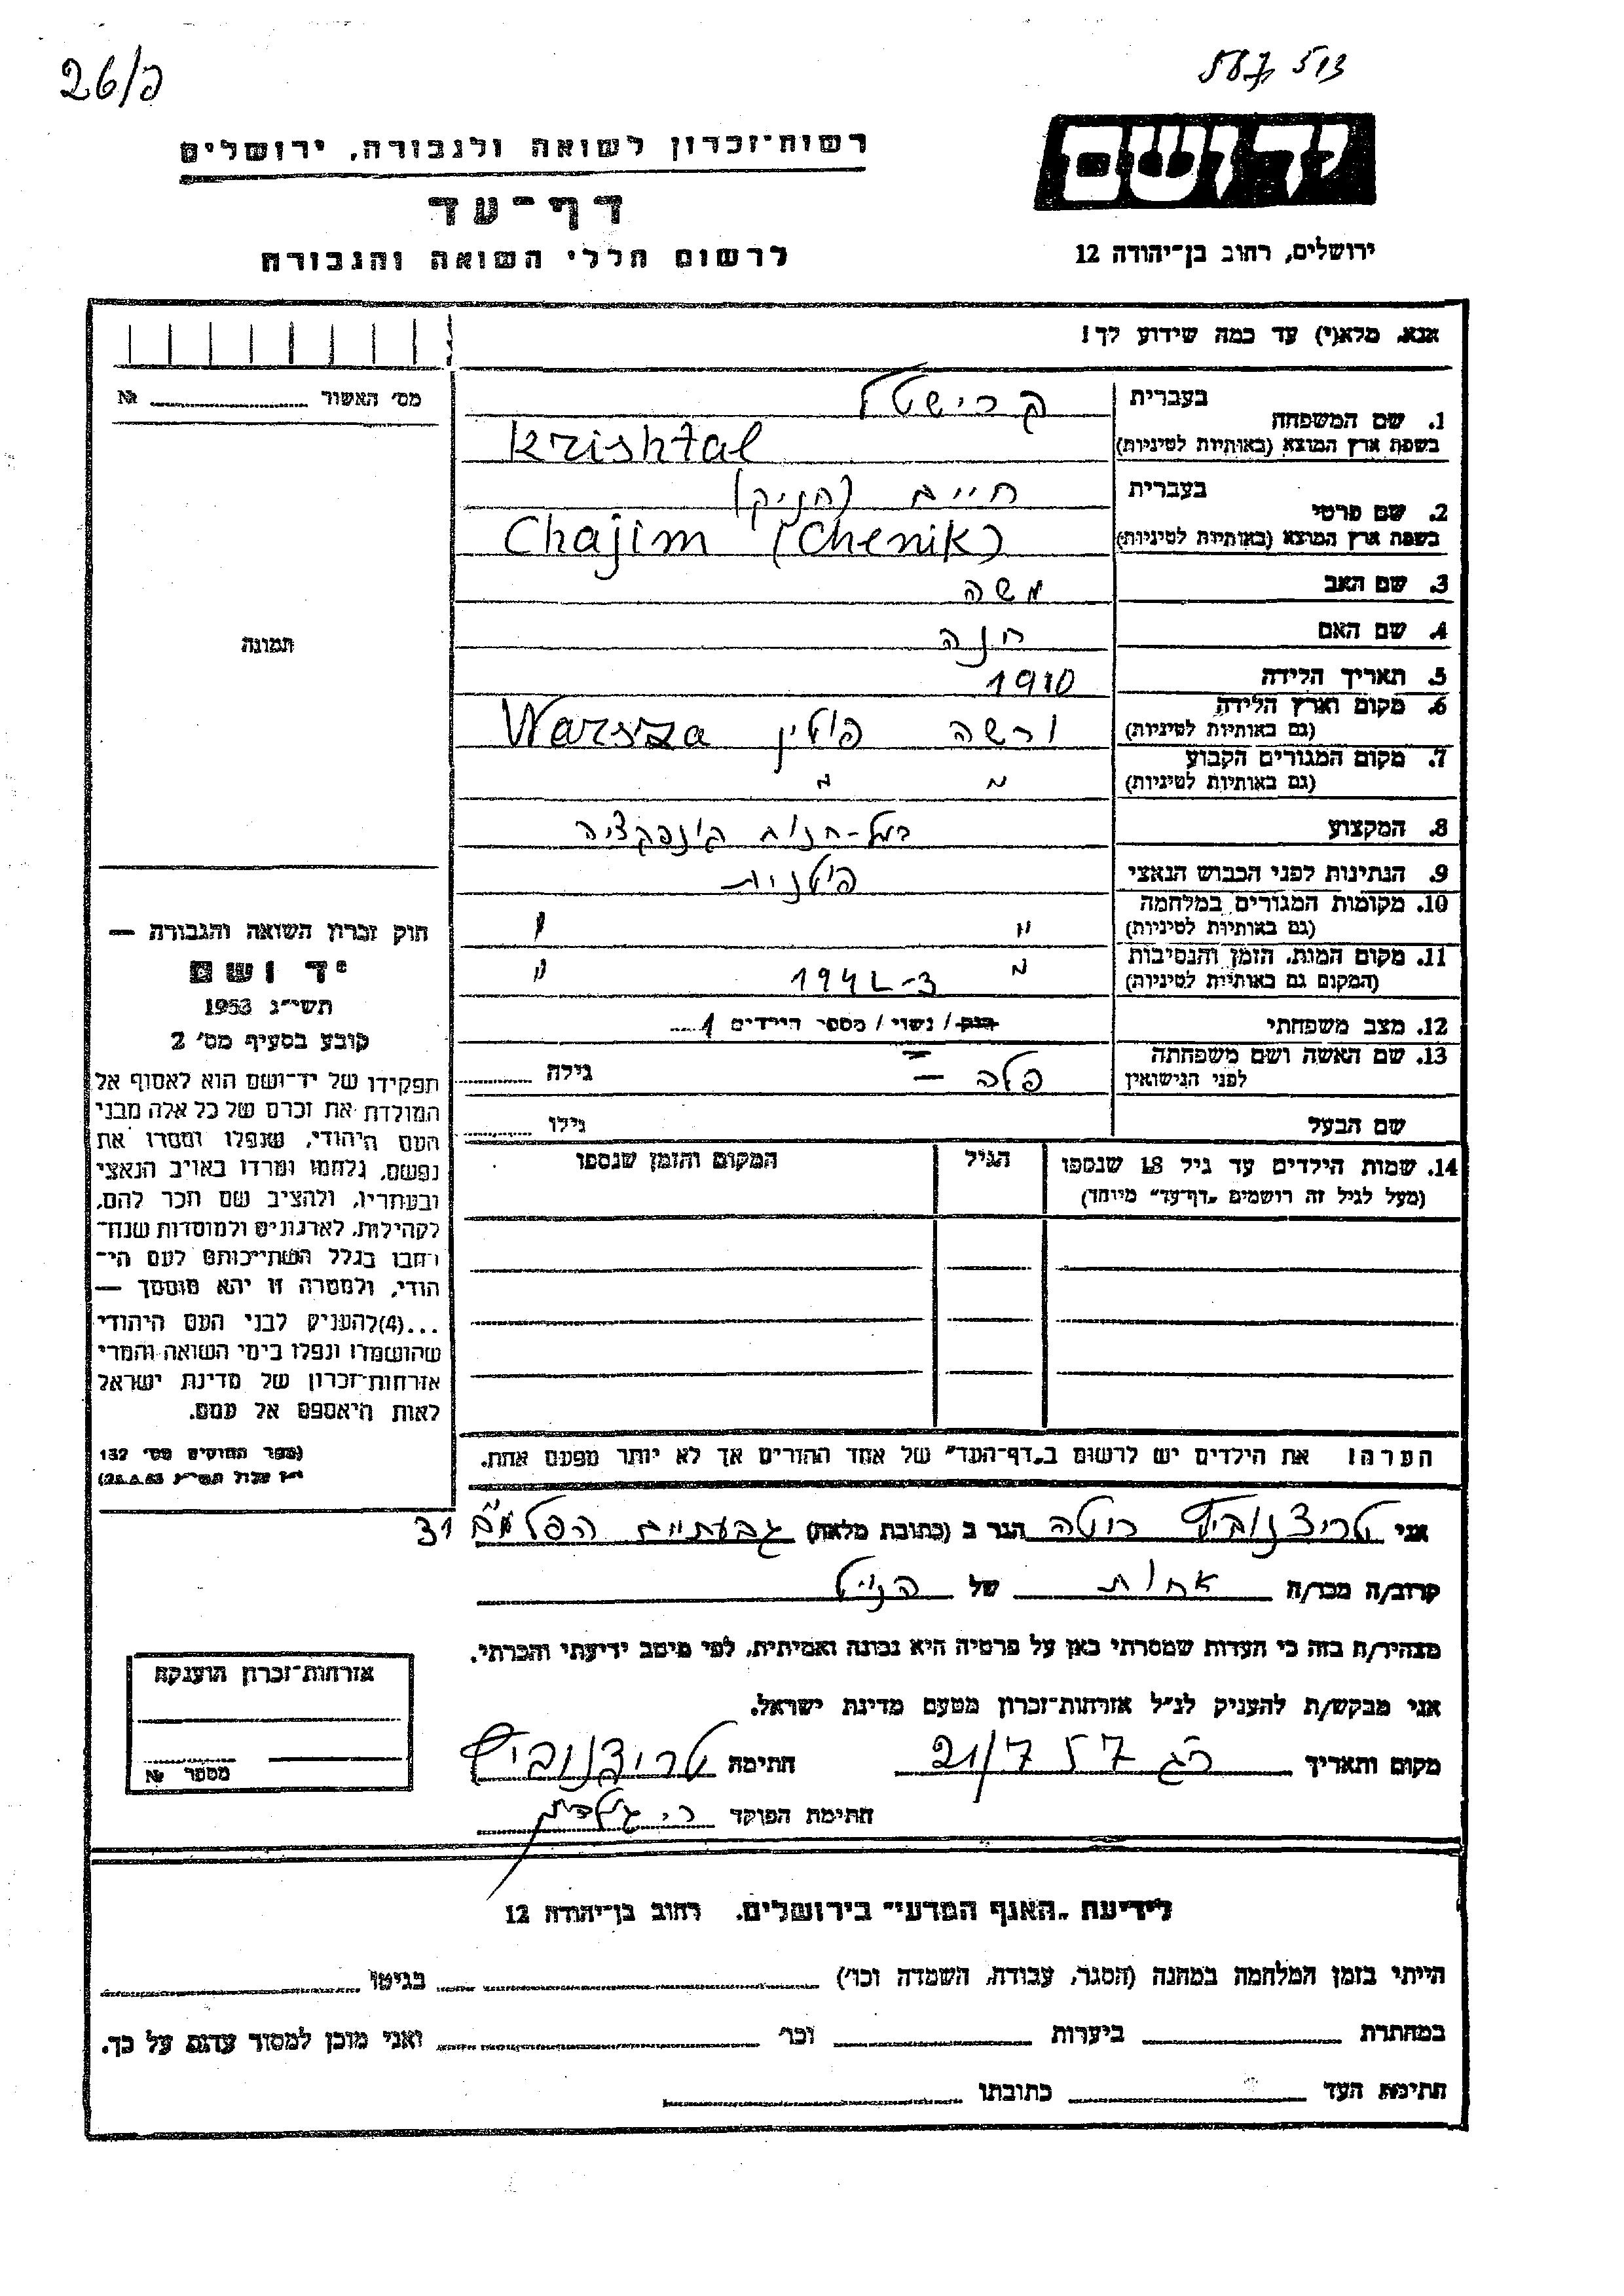 26/כ
587 513
רשות־זכרון לשואה ולגבורה, ירושלים
דף־עד
לרשום חללי השואה והגבורה
יד ושם
ירושלים, רחוב בן־יהודה 12
אנא, מלא(י) עד כמה שידוע לך!
מס׳ האשור № 
1. שם המשפחה
בעברית קרישטל
בשפת ארץ המוצא (באותיות לטיניות) Krishtal
2. שם פרטי
בעברית חיים (חניק)
בשפת ארץ המוצא (באותיות לטיניות) Chajim (Chenik)
3. שם האב משה
4. שם האם חנה
5. תאריך הלידה 1910
6. מקום וארץ הלידה (גם באותיות לטיניות) ורשה פולין Warsza
7. מקום המגורים הקבוע (גם באותיות לטיניות) " "
8. המקצוע בעל-חנות קונפקציה
9. הנתינות לפני הכבוש הנאצי פולנית
10. מקומות המגורים במלחמה (גם באותיות לטיניות) " "
11. מקום המות, הזמן והנסיבות (המקום גם באותיות לטיניות) " 1942-3 "
12. מצב משפחתי רווק / נשוי / מספר הילדים 1
13. שם האשה ושם משפחתה לפני הנישואין פלה — גילה
שם הבעל גילו
14. שמות הילדים עד גיל 18 שנספו (מעל לגיל זה רושמים „דף־עד״ מיוחד)
הגיל
המקום והזמן שנספו
הערה! את הילדים יש לרשום ב„דף־העד״ של אחד ההורים אך לא יותר מפעם אחת.
תמונה
חוק זכרון השואה והגבורה —
יד ושם
תשי״ג 1953
קובע בסעיף מס׳ 2
תפקידו של יד־ושם הוא לאסוף אל
המולדת את זכרם של כל אלה מבני
העם היהודי, שנפלו ומסרו את
נפשם, נלחמו ומרדו באויב הנאצי
ובעוזריו, ולהציב שם וזכר להם,
לקהילות, לארגונים ולמוסדות שנח־
רבו בגלל השתייכותם לעם הי־
הודי, ולמטרה זו יהא מוסמך —
...(4)להעניק לבני העם היהודי
שהושמדו ונפלו בימי השואה והמרי
אזרחות־זכרון של מדינת ישראל
לאות היאספם אל עמם.
(ספר החוקים מס׳ 132
י״ז אלול תשי״ג 28.8.53)
אני טריצנוביץ ריטה הגר ב (כתובת מלאה) גבעתיים הפלמ״ח 31
קרוב/ה מכר/ה אחות של הנ״ל
מצהיר/ה בזה כי העדות שמסרתי כאן על פרטיה היא נכונה ואמיתית, לפי מיטב ידיעתי והכרתי.
אני מבקש/ת להעניק לנ״ל אזרחות־זכרון מטעם מדינת ישראל.
מקום ותאריך רג 21/7 57 חתימה טריצנוביץ
חתימת הפוקד
אזרחות־זכרון הוענקה
מספר №
לידיעת „האגף המדעי״ בירושלים, רחוב בן־יהודה 12
הייתי בזמן המלחמה במחנה (הסגר, עבודה, השמדה וכו׳) בגיטו
במחתרת ביערות וכו׳ ואני מוכן למסור עדות על כך.
חתימת העד כתובתו